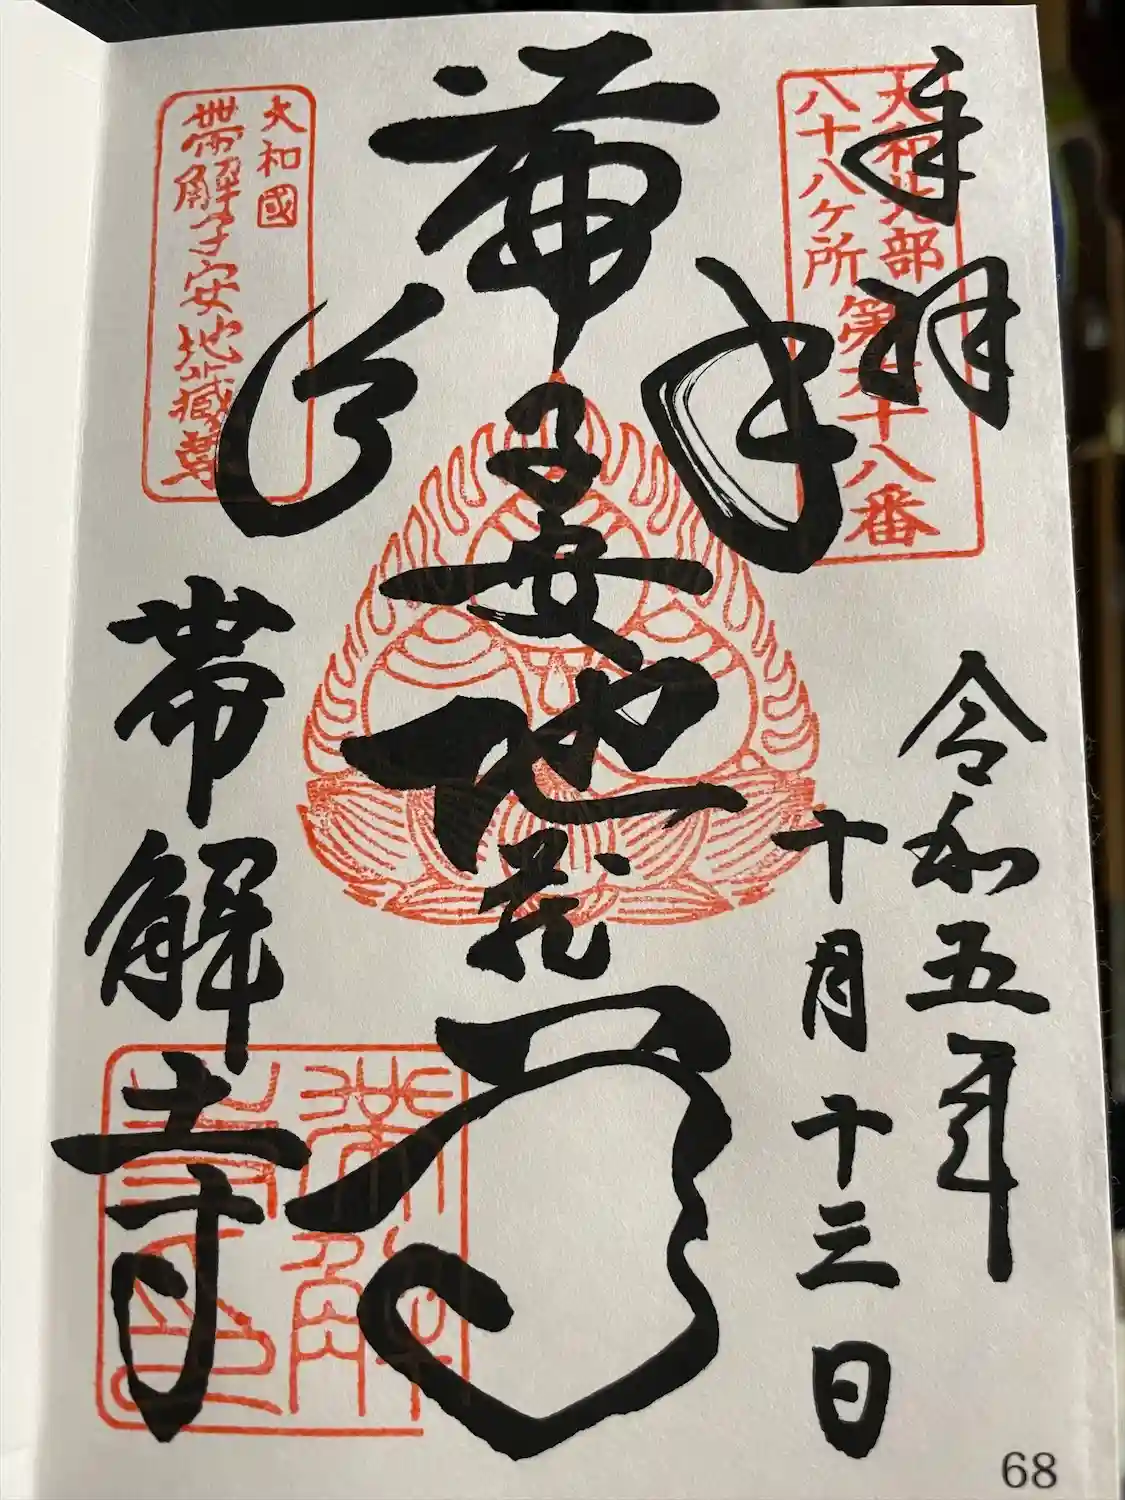 奉拝
大和北部
八十八ヶ所第六十八番
令和五年
十月十三日
帯解子安地蔵尊
大和國
帶解子安地藏尊
帯解寺
帯解
寺印
68